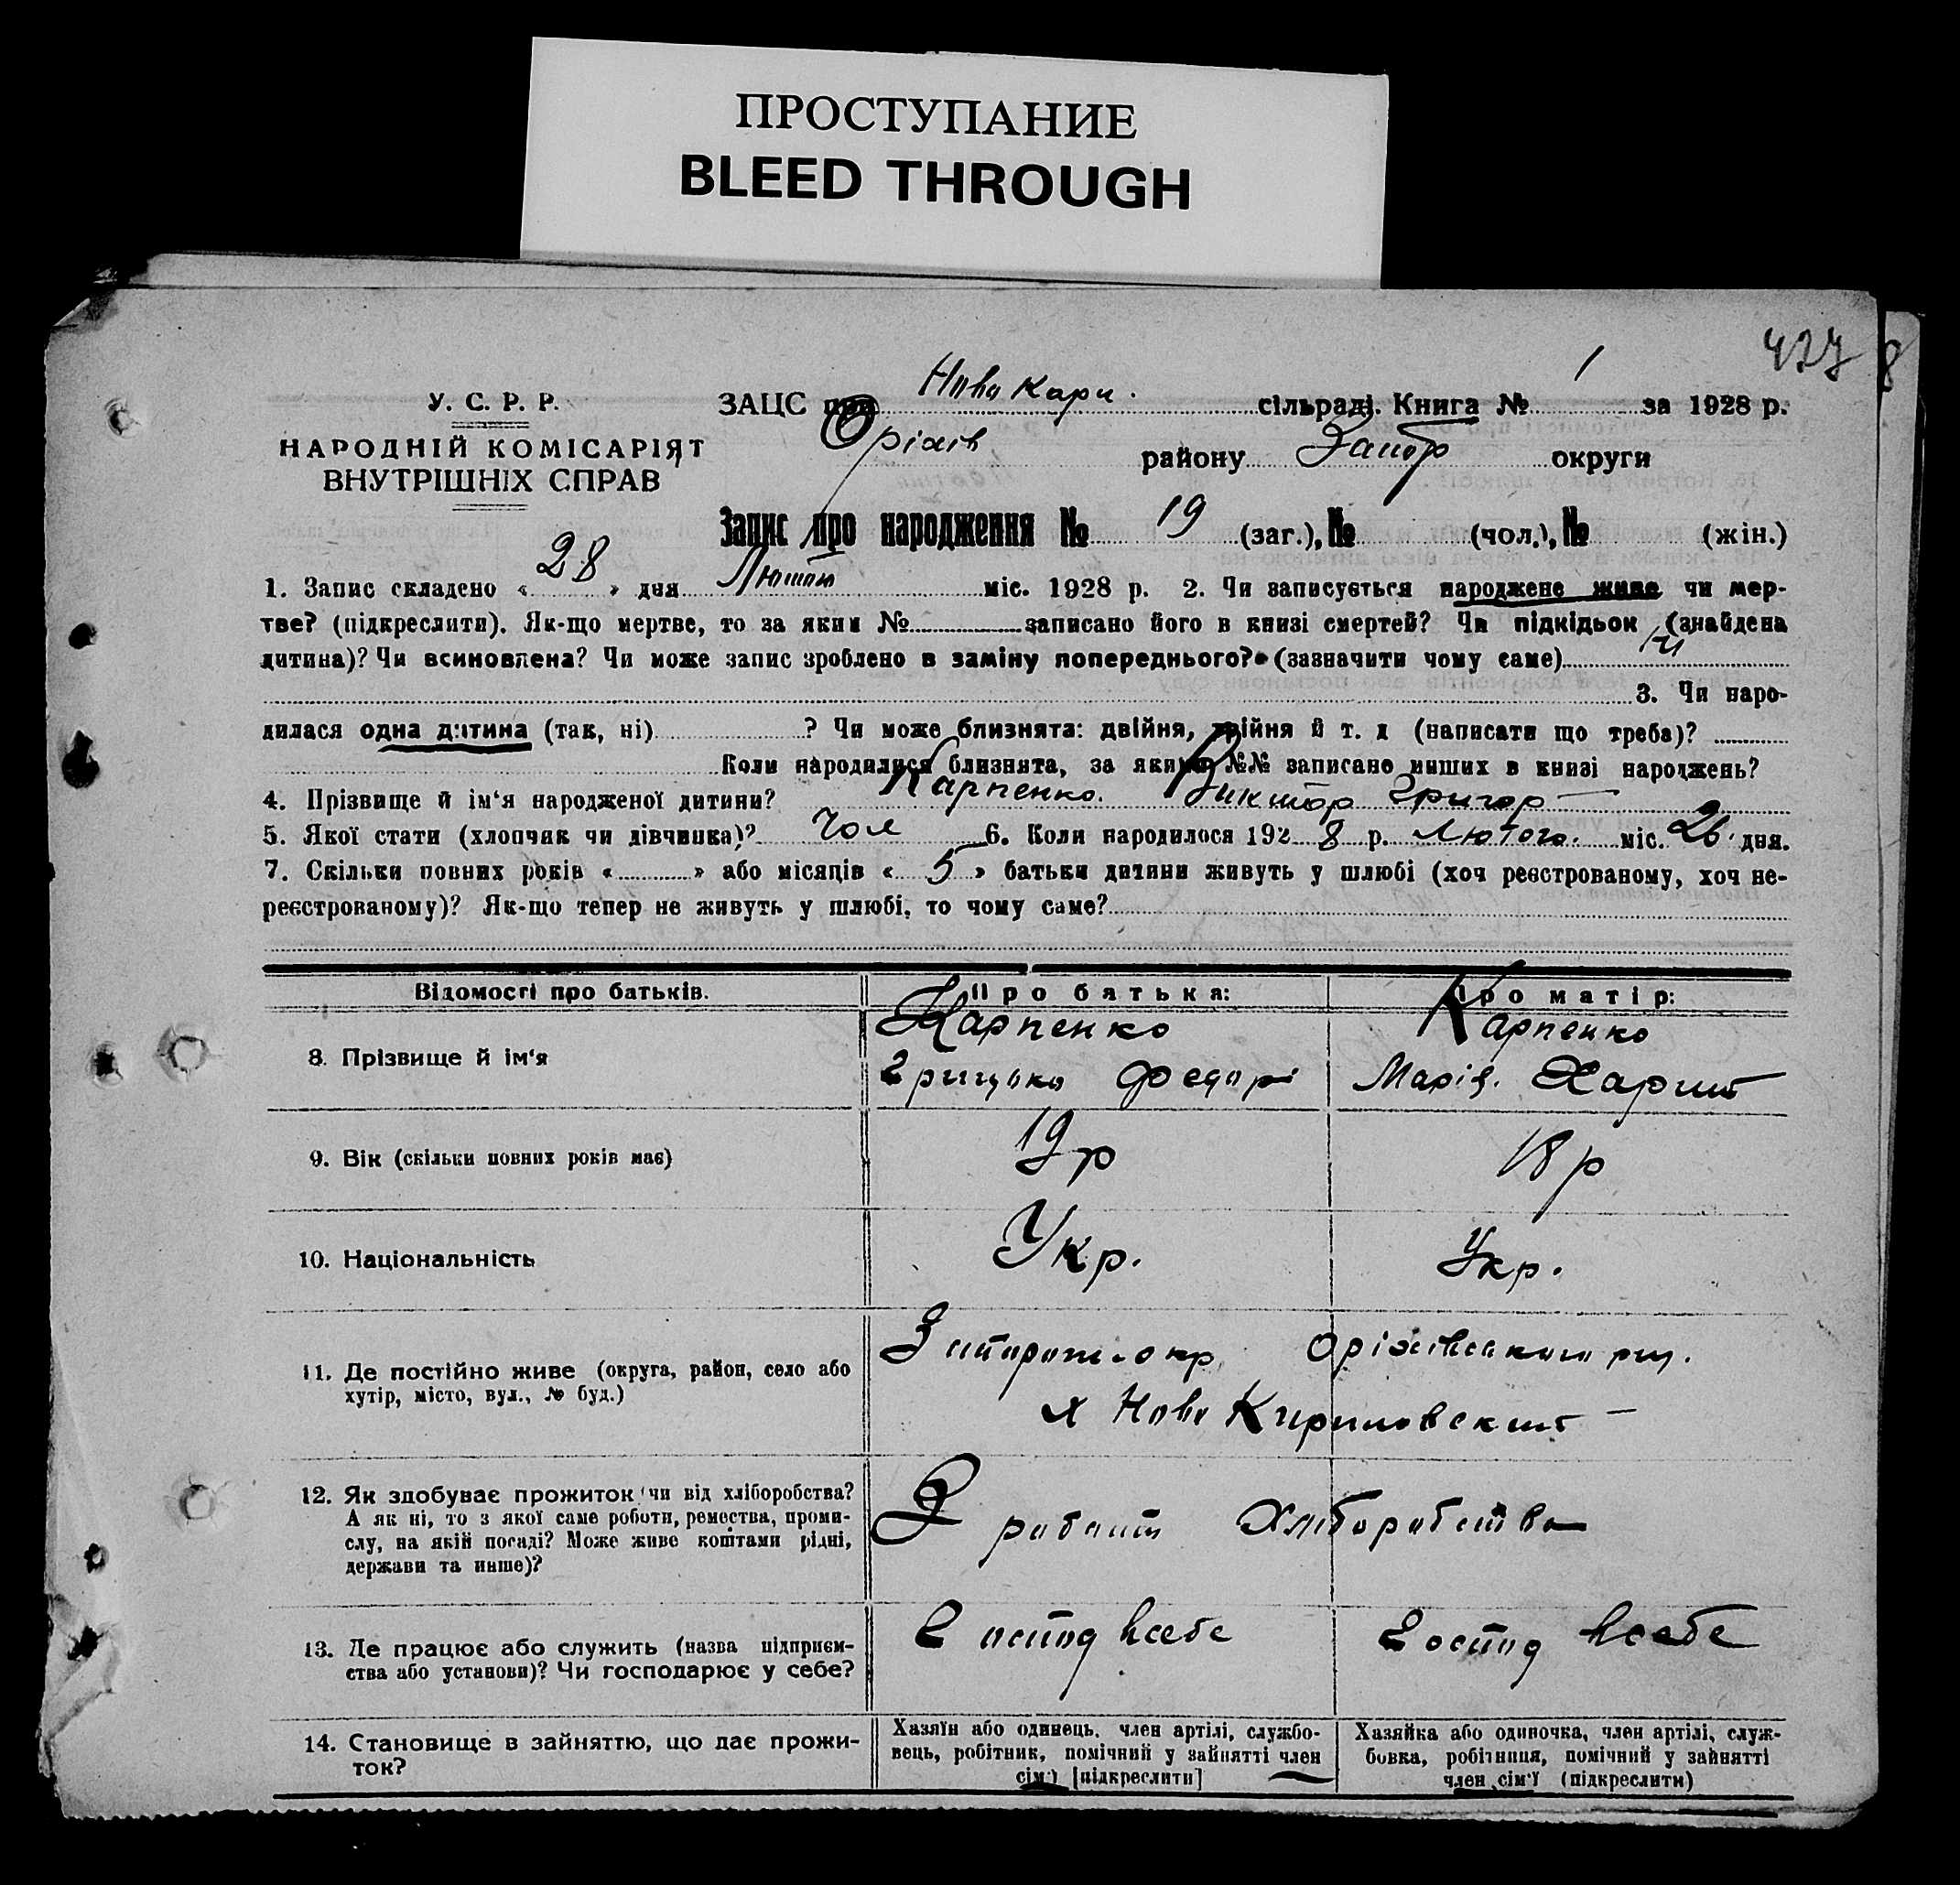 ПРОСТУПАНИЕ
BLEED THROUGH
У. С. Р. Р.
НАРОДНІЙ КОМІСАРІЯТ
ВНУТРІШНІХ СПРАВ
ЗАЦС при сільраді. Книга № 1 за 1928 р.
Оріхів району Запор округи
Запис про народження № 19 (заг.), № (чол.), № (жін.)
1. Запис складено « 28 » дня Лютого міс. 1928 р. 2. Чи записується народжене живе чи мер-
тве? (підкреслити). Як-що мертве, то за яким № записано його в книзі смертей? Чи підкідьок (знайдена
дитина)? Чи всиновлена? Чи може запис зроблено в заміну попереднього? (зазначити чому саме) ні
3. Чи наро-
дилася одна дитина (так, ні) ? Чи може близнята: двійня, трійня й т. д (написати що треба)?
Коли народилися близнята, за якими №№ записано инших в книзі народжень?
4. Прізвище й ім'я народженої дитини? Карпенко. Виктор Григор
5. Якої стати (хлопчик чи дівчинка)? Чол 6. Коли народилося 192 8 р. Лютого. міс. 26. дня.
7. Скільки повних років « » або місяців « 5 » батьки дитини живуть у шлюбі (хоч реєстрованому, хоч не-
реєстрованому)? Як-що тепер не живуть у шлюбі, то чому саме?
Відомості про батьків. Про батька: Про матір:
8. Прізвище й ім'я
Карпенко Карпенко
Грицько Федорі Марія. Харит
9. Вік (скільки повних років має) 19 р 18 р
10. Національність Укр. Укр.
11. Де постійно живе (округа, район, село або
хутір, місто, вул., № буд.)
Запорож. окр. Оріхівського
х Ново Кириловский
12. Як здобуває прожиток (чи від хліборобства?
А як ні, то з якої саме роботи, ремества, проми-
слу, на якій посаді? Може живе коштами рідні,
держави та инше)?
З работи Хліборобства
13. Де працює або служить (назва підприєм-
ства або установи)? Чи господарює у себе?
Господ всебе Господ всебе
14. Становище в зайняттю, що дає прожи-
ток?
Хазяїн або одинець, член артілі, службо-
вець, робітник, помічний у зайнятті член
сім'ї [підкреслити]
Хазяйка або одиночка, член артілі, служ-
бовка, робітниця, помічний у зайнятті
член сім'ї (підкреслити)